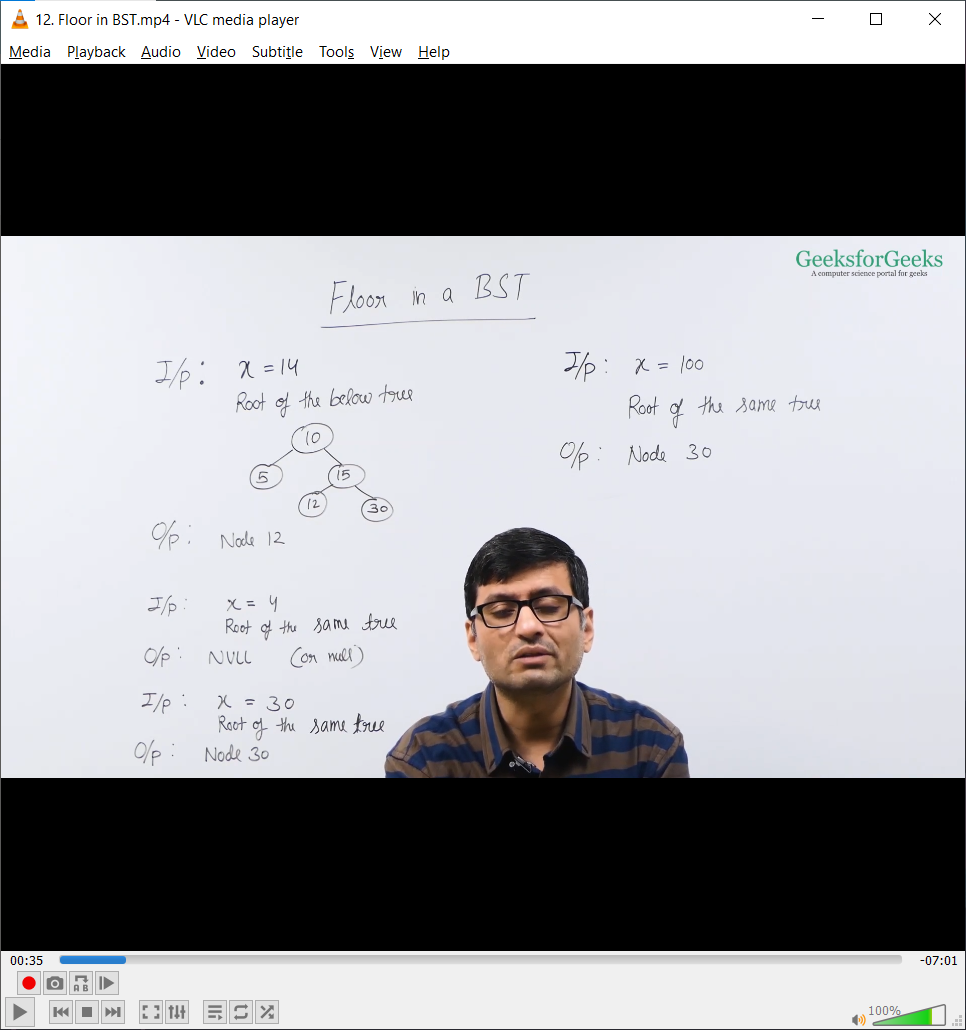 12. Floor in BST.mp4 - VLC media player
Media Playback Audio Video Subtitle Tools View Help
GeeksforGeeks
A computer science portal for geeks
Floor in a BST
I/p: x = 14
Root of the below tree
10
5 15
12 30
O/p: Node 12
I/p: x = 4
Root of the same tree
O/p: NULL (or null)
I/p: x = 30
Root of the same tree
O/p: Node 30
I/p: x = 100
Root of the same tree
O/p: Node 30
00:35 -07:01
A B
100%